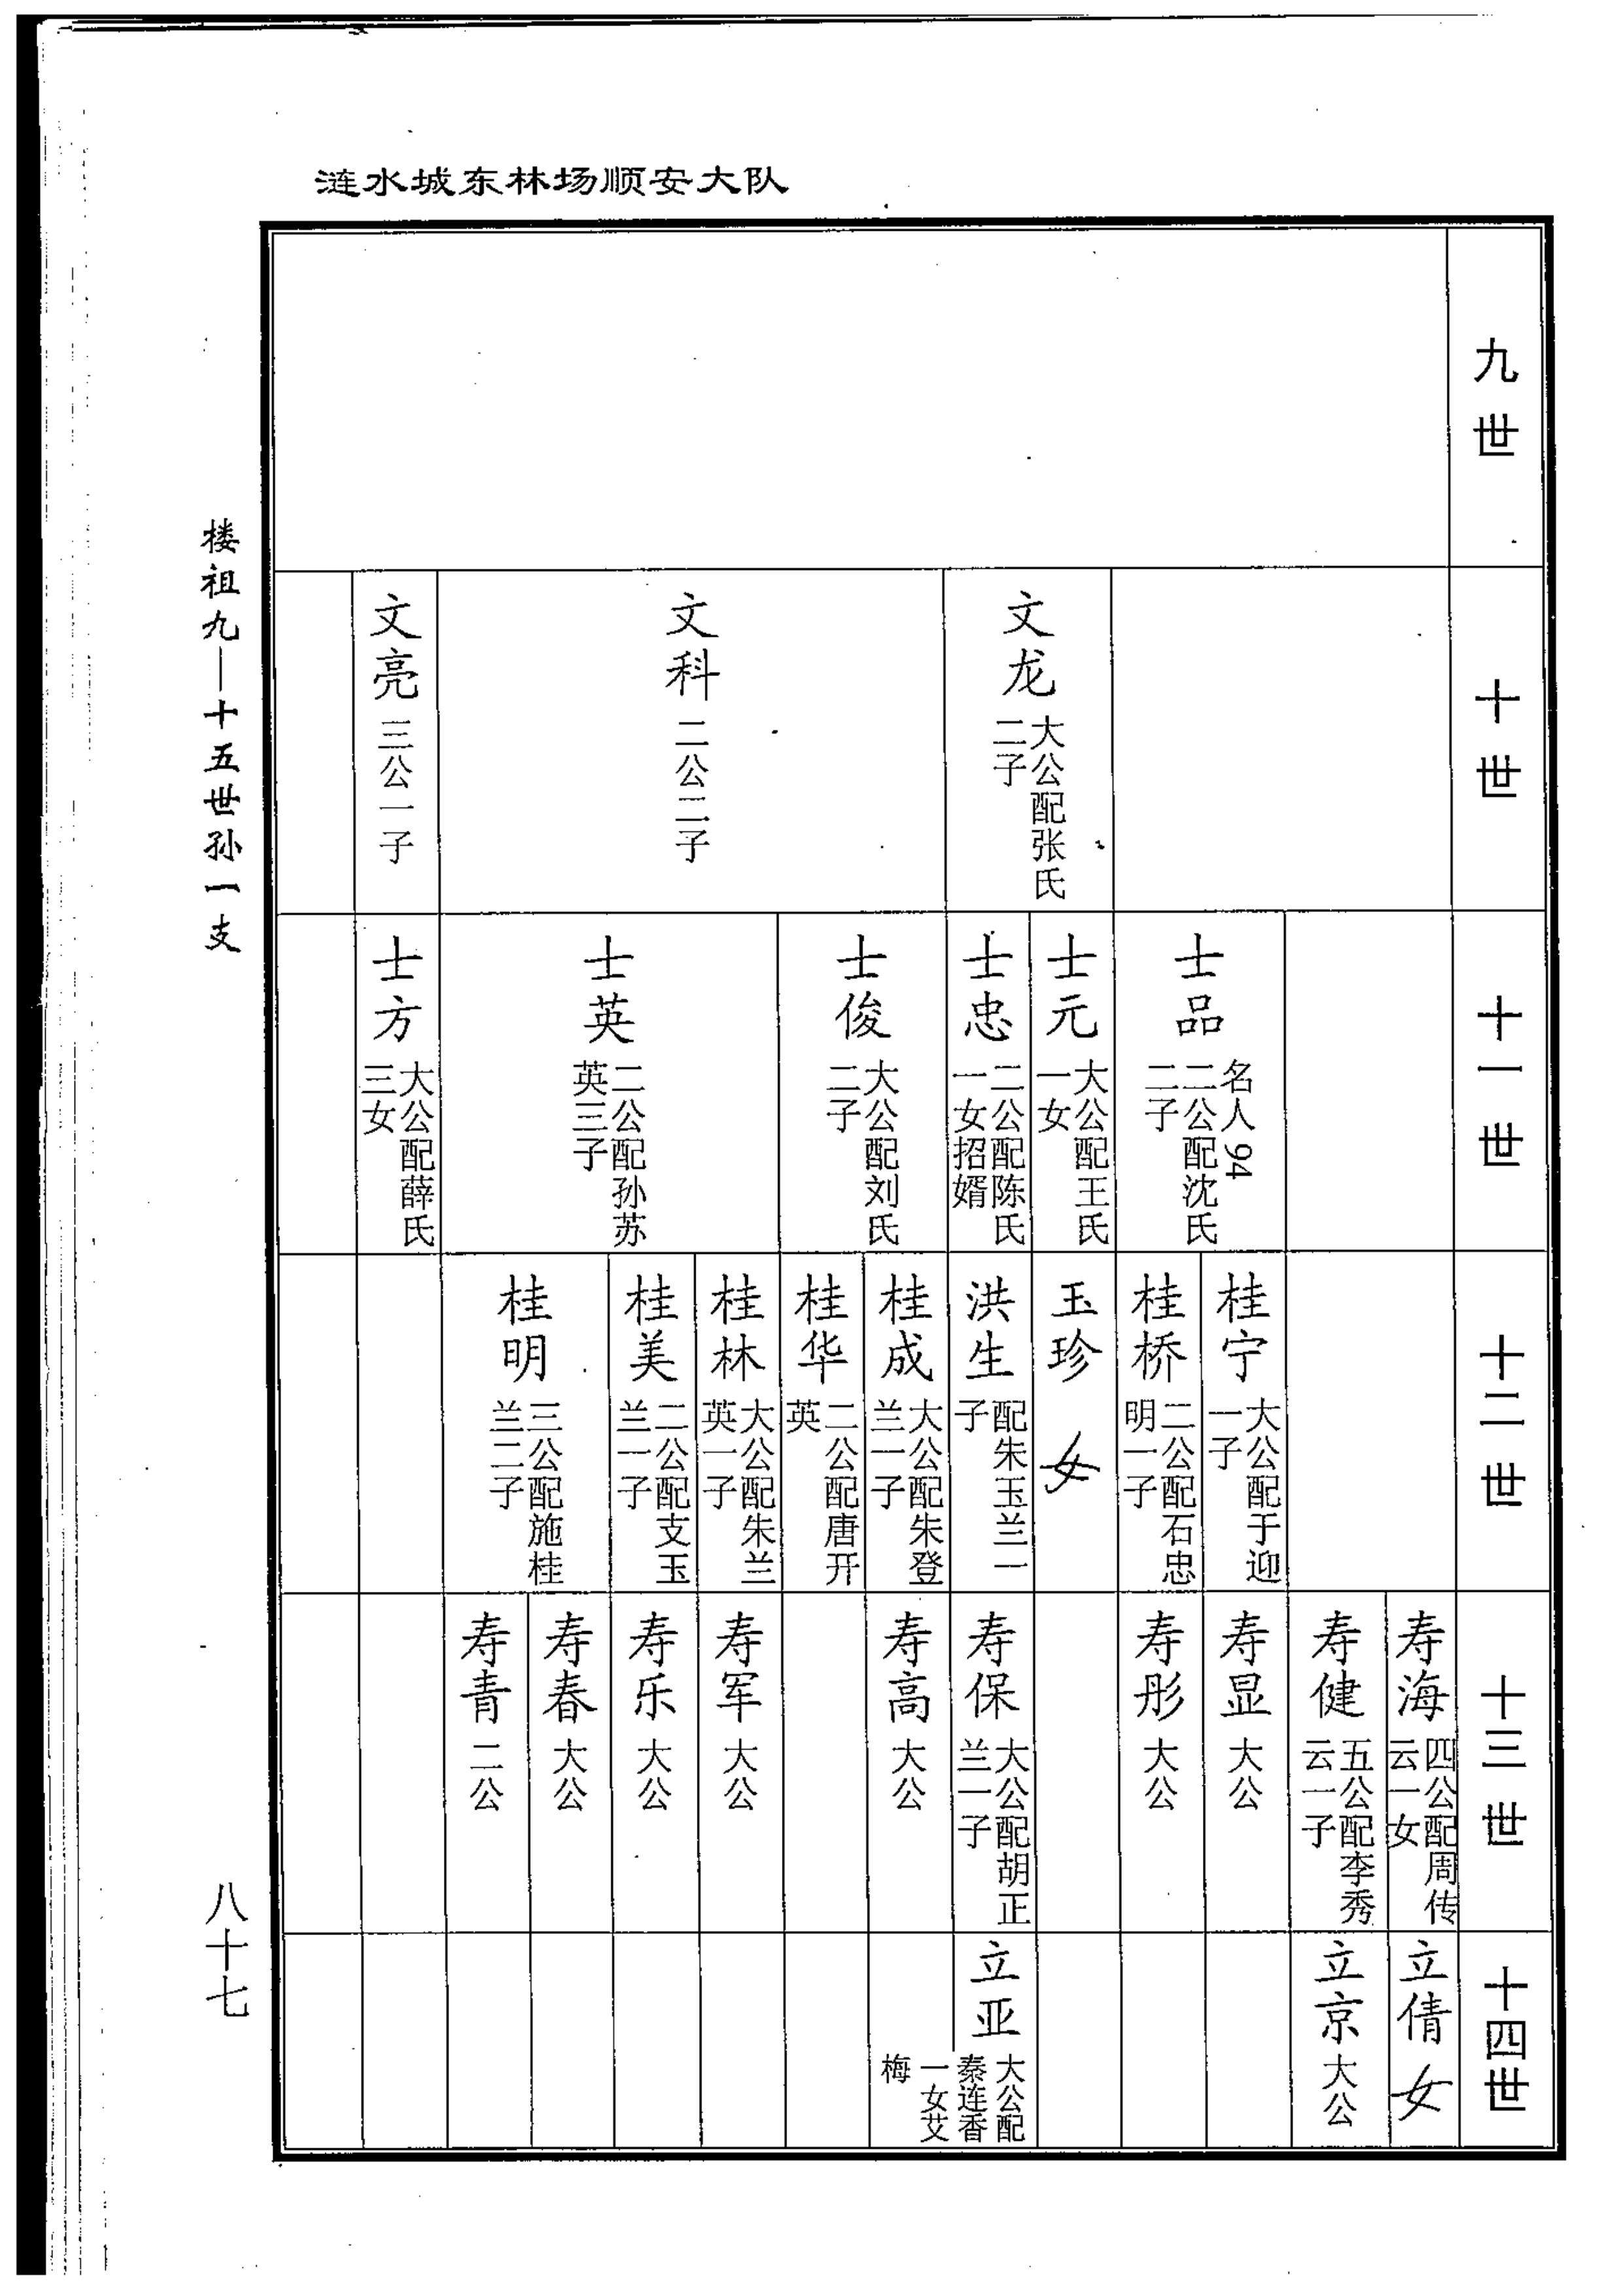 涟水城东林场顺安大队
九世
十世
文龙
大公配张氏
二子
文科
二公二子
文亮
三公一子
十一世
士品
名人94
二公配沈氏
二子
士元
大公配王氏
一女
士忠
二公配陈氏
一女招婿
士俊
大公配刘氏
二子
士英
二公配孙苏
英三子
士方
大公配薛氏
三女
十二世
桂宁
大公配于迎
一子
桂桥
二公配石忠
明一子
玉珍
女
洪生
配朱玉兰一
子
桂成
大公配朱登
兰一子
桂华
二公配唐开
英
桂林
大公配朱兰
英一子
桂美
二公配支玉
兰一子
桂明
三公配施桂
兰二子
十三世
寿海
四公配周传
云一女
寿健
五公配李秀
云一子
寿显
大公
寿彤
大公
寿保
大公配胡正
兰一子
寿高
大公
寿军
大公
寿乐
大公
寿春
大公
寿青
二公
十四世
立倩
女
立京
大公
立亚
大公配
秦连香
一女艾
梅
楼祖九—十五世孙一支
八十七